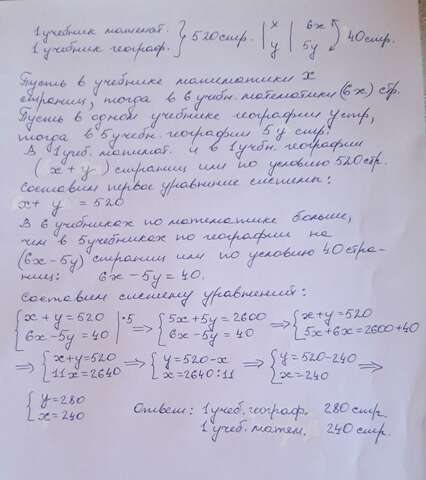 1 учебник математ. } 520 стр. | x | 6x 40 стр.
1 учебник географ. y | 5y
Пусть в учебнике математики x
страниц, тогда в 6 учебн. математики (6x) стр.
Пусть в одном учебнике географии y стр,
тогда в 5 учебн. географии 5y стр.
В 1 учеб. математ. и в 1 учебн. географии
(x + y) страниц или по условию 520 стр.
Составим первое уравнение системы:
x + y = 520
В 6 учебниках по математике больше,
чем в 5 учебниках по географии на
(6x - 5y) страниц или по условию 40 стра-
ниц: 6x - 5y = 40.
Составим систему уравнений:
{ x + y = 520 | · 5 => { 5x + 5y = 2600 => { x + y = 520
6x - 5y = 40 6x - 5y = 40 5x + 6x = 2600 + 40
=> { x + y = 520 => { y = 520 - x => { y = 520 - 240 =>
11x = 2640 x = 2640 : 11 x = 240
{ y = 280 Ответ: 1 учеб. географ. 280 стр
x = 240 1 учеб. матем. 240 стр.